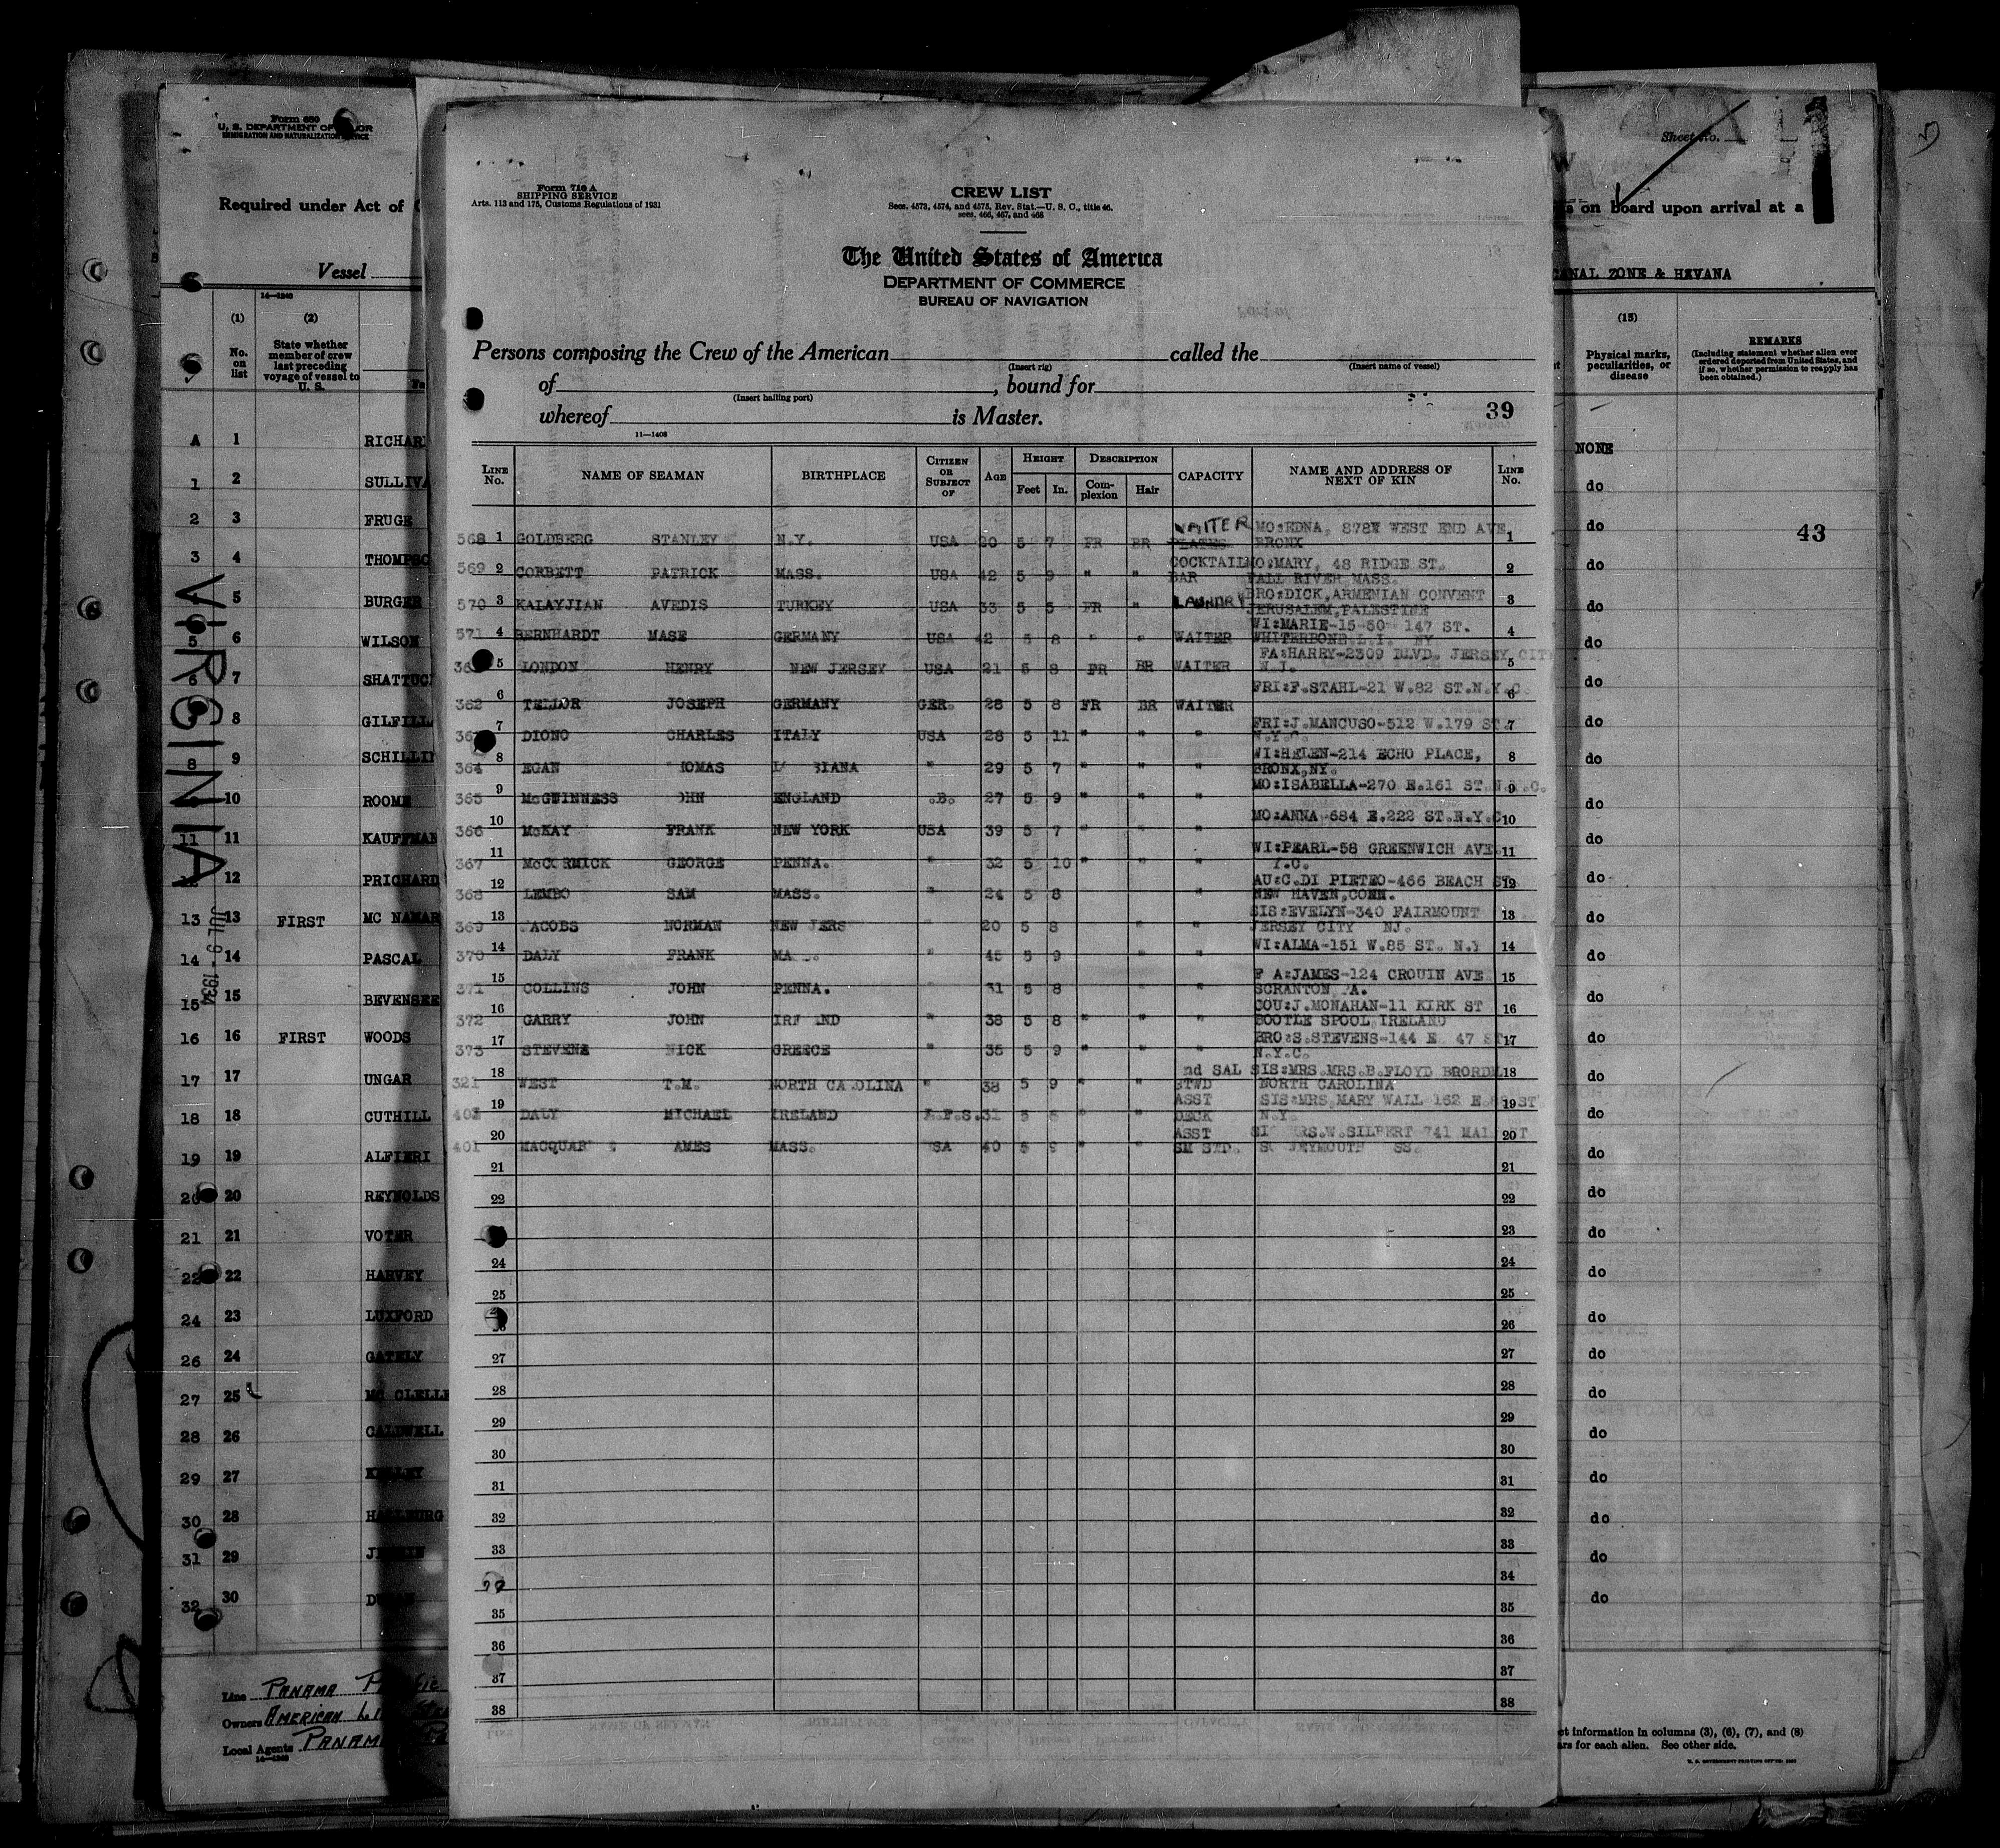 Form 680
U. S. DEPARTMENT OF
IMMIGRATION AND NATURALIZATION SERVICE
Required under Act of
Vessel
14—1240
(1)
No. on list
(2)
State whether member of crew last preceding voyage of vessel to U. S.
A 1 RICHAR
1 2 SULLIVA
2 3 FRUGE
3 4 THOMPSO
5 BURGER
5 6 WILSON
6 7 SHATTUC
8 GILFILL
8 9 SCHILLI
10 ROOME
11 11 KAUFFMAN
12 PRICHARD
13 13 FIRST MC NAMAR
14 14 PASCAL
15 15 BEVENSEE
16 16 FIRST WOODS
17 17 UNGAR
18 18 CUTHILL
19 19 ALFIERI
20 20 REYNOLDS
21 21 VOTER
22 22 HARVEY
24 23 LUXFORD
26 24 GATELY
27 25 MC CLELLE
28 26 CALDWELL
29 27 KELLEY
30 28
31 29
32 30
VIRGINIA
JUL 9 - 1934
Line PANAMA
Owners AMERICAN LI
Local Agents PANAMA
14—1240
Form 710 A
SHIPPING SERVICE
Arts. 113 and 175, Customs Regulations of 1931
CREW LIST
Secs. 4573, 4574, and 4575, Rev. Stat.—U. S. C., title 46.
secs. 466, 467, and 468
The United States of America
DEPARTMENT OF COMMERCE
BUREAU OF NAVIGATION
Persons composing the Crew of the American called the
(Insert rig) (Insert name of vessel)
of , bound for
(Insert hailing port)
whereof is Master. 39
11—1408
LINE No. NAME OF SEAMAN BIRTHPLACE CITIZEN OR SUBJECT OF AGE HEIGHT Feet In. DESCRIPTION Complexion Hair CAPACITY NAME AND ADDRESS OF NEXT OF KIN LINE No.
WAITER MO:EDNA, 878 WEST END AVE,
568 1 GOLDBERG STANLEY N.Y. USA 20 5 7 FR BR PLATES BRONX 1
COCKTAIL MO:MARY, 48 RIDGE ST.
569 2 CORBETT PATRICK MASS. USA 42 5 9 " " BAR FALL RIVER MASS. 2
570 3 KALAYJIAN AVEDIS TURKEY USA 33 5 5 FR " LAUNDRY BRO:DICK, ARMENIAN CONVENT 3
JERUSALEM, PALESTINE
WI:MARIE-15-50 147 ST.
571 4 BERNHARDT MASE GERMANY USA 42 5 8 " " WAITER WHITERBONE L.I. NY 4
FA:HARRY-2309 BLVD. JERSEY CITY
5 LONDON HENRY NEW JERSEY USA 21 5 8 FR BR WAITER N.J. 5
FRI:F.STAHL-21 W.82 ST.N.Y.C.
362 6 TELLOR JOSEPH GERMANY GER. 28 5 8 FR BR WAITER 6
FRI:J.MANCUSO-512 W.179 ST.
7 DIONO CHARLES ITALY USA 28 5 11 " " " N.Y.C. 7
WI:HELEN-214 ECHO PLACE,
364 8 EGAN HOMAS IANA " 29 5 7 " " " BRONX,NY. 8
MO:ISABELLA-270 E.161 ST.N.Y.C.
365 9 McGUINNESS OHN ENGLAND .B. 27 5 9 " " " 9
MO:ANNA-684 E.222 ST.N.Y.C
366 10 McKAY FRANK NEW YORK USA 39 5 7 " " " 10
WI:PEARL-58 GREENWICH AVE
367 11 McCORMICK GEORGE PENNA. " 32 5 10 " " " Y.C. 11
AU:C.DI PIETRO-466 BEACH ST
368 12 LEMBO SAM MASS. " 24 5 8 " NEW HAVEN,CONN. 12
SIS:EVELYN-340 FAIRMOUNT
369 13 JACOBS NORMAN NEW JERS " 20 5 8 " JERSEY CITY NJ. 13
WI:ALMA-151 W.85 ST. N.Y
370 14 DALY FRANK MA " 45 5 9 " " " 14
F A:JAMES-124 CROUIN AVE
371 15 COLLINS JOHN PENNA. " 31 5 8 " " " SCRANTON A. 15
COU:J.MONAHAN-11 KIRK ST
372 16 GARRY JOHN IRE ND " 38 5 8 " " " BOOTLE SPOOL IRELAND 16
BRO:S.STEVENS-144 E 47 ST
373 17 STEVENS NICK GREECE " 35 5 9 " " " N.Y.C. 17
nd SAL SIS:MRS.MRS.B.FLOYD
321 18 WEST T.M. NORTH CAROLINA " 38 5 9 " " STWD NORTH CAROLINA 18
ASST SIS:MRS MARY WALL 162 E. ST
403 19 DALY MICHAEL IRELAND 31 5 8 " " DECK N.Y. 19
ASST W.SILBERT 741
401 20 MACQUAR AMES MASS. SA 40 5 9 " " SM STD. EYMOUTH SS. 20
21 21
22 22
23
24 24
25 25
26
27 27
28 28
29 29
30 30
31 31
32 32
33 33
34
35 35
36 36
37 37
38 38
Sheet No.
1
on board upon arrival at a
CANAL ZONE & HAVANA
(15)
Physical marks, peculiarities, or disease
REMARKS
(Including statement whether alien ever ordered deported from United States, and if so, whether permission to reapply has been obtained.)
NONE
do
do
43
do
do
do
do
do
do
do
do
do
do
do
do
do
do
do
do
do
do
do
do
do
do
do
do
do
do
do
information in columns (3), (6), (7), and (8)
for each alien. See other side.
U. S. GOVERNMENT PRINTING OFFICE